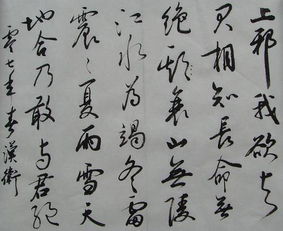 上邪我欲与
君相知長命無
絶衰山無陵
江水為竭冬雷
震々夏雨雪天
地合乃敢与君絕
零七年春漢衛